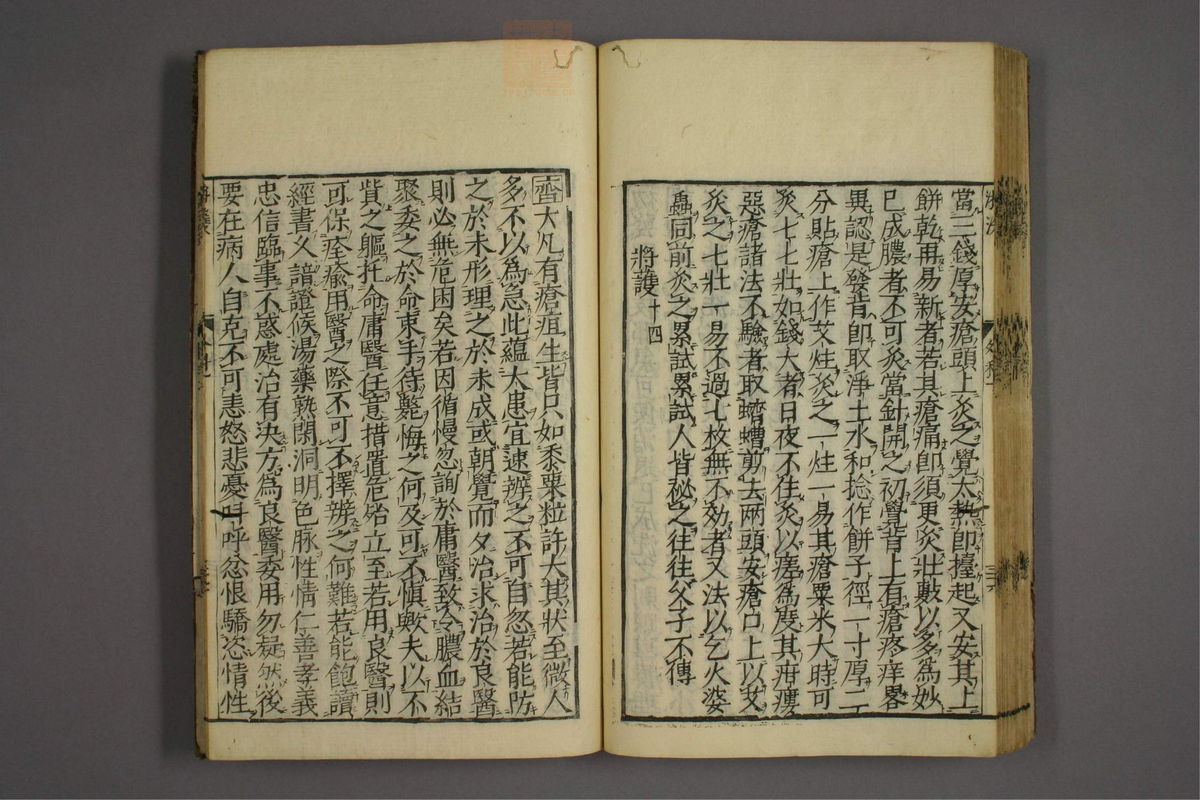 當三錢厚安瘡頭上灸之覺太熱即擡起又安其上
餅乾再易新者若其瘡痛即須更灸壯數以多為妙
已成膿者不可灸當針開之初覺背上有瘡疼痒畧
異認是發背即取淨土水和捻作餅子徑一寸厚二
分貼瘡上作艾炷灸之一炷一易其瘡粟米大時可
灸七七壯如錢大者日夜不住灸以瘥為度其疳瘻
惡瘡諸法不驗者取蠐螬剪去兩頭安瘡口上以艾
灸之七壯一易不過七枚無不効者又法以乞火婆
蟲同前灸之累試累試人皆秘之往往父子不傳
將護十四
齊大凡有瘡疽生皆只如黍粟粒許大其狀至微人
多不以為急此蘊大患宜速辨之不可自忽若能防
之於未形理之於未成或朝覺而夕治求治於良醫
則必無危困矣若因循慢忽詢於庸醫致令膿血結
聚委之於命束手待斃悔之何及可不慎歟夫以不
貲之軀托命庸醫任意措置危殆立至若用良醫則
可保痊瘉用醫之際不可不擇辨之何難若能飽讀
經書久諳證候湯藥熟閑洞明色脉性情仁善孝義
忠信臨事不惑處治有決方為良醫委用勿疑然後
要在病人自克不可恚怒悲憂叫呼忿恨驕恣情性